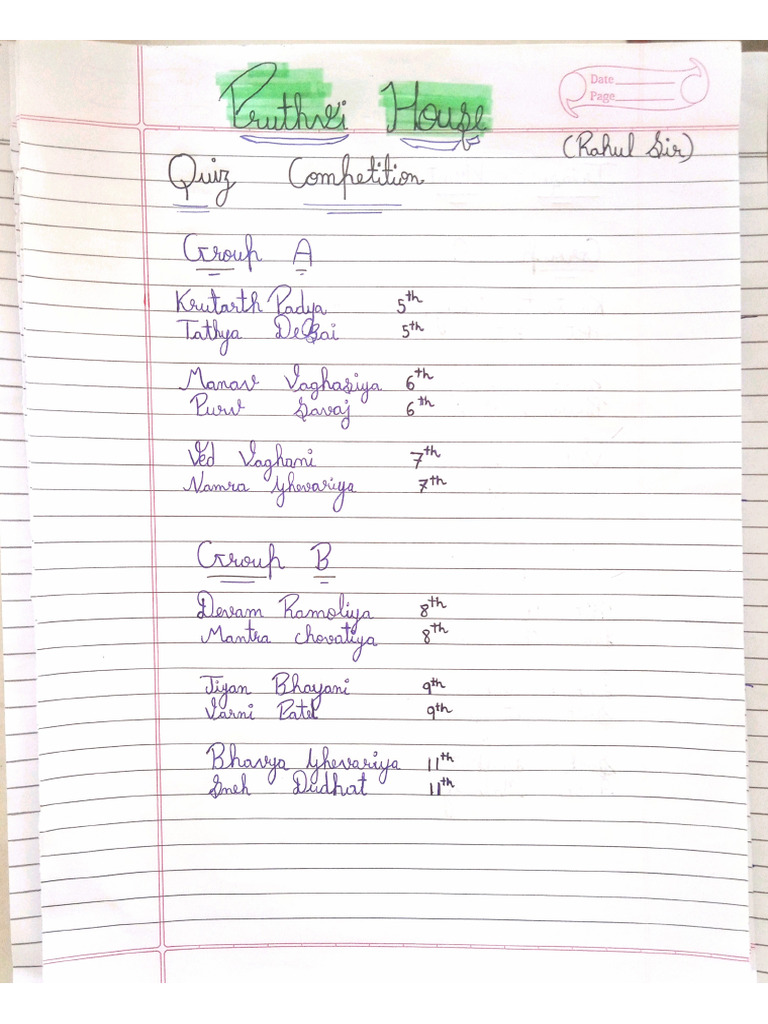 Pruthvi House
Date
Page
(Rahul Sir)
Quiz Competition
Group A
Krutarth Padya 5th
Tathya Desai 5th
Manav Vaghasiya 6th
Purv Savaj 6th
Ved Vaghani 7th
Namra Ghevariya 7th
Group B
Devam Ramoliya 8th
Mantra Chovatiya 8th
Jiyan Bhayani 9th
Varni Patel 9th
Bhavya Ghevariya 11th
Sneh Dudhat 11th